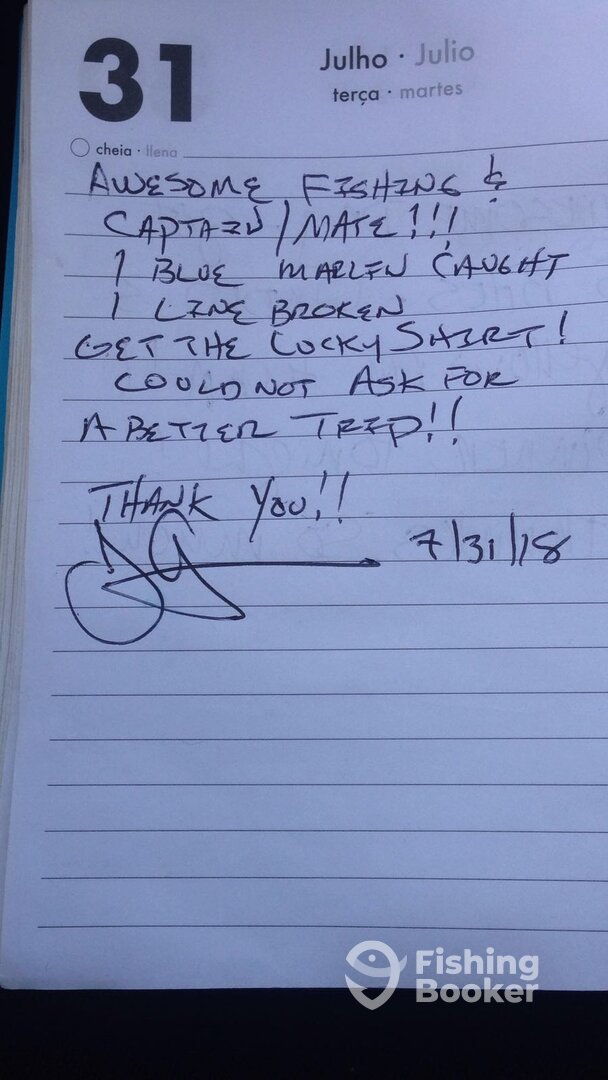 31
Julho · Julio
terça · martes
cheia · llena
AWESOME FISHING &
CAPTAIN/MATE!!!
1 BLUE MARLIN CAUGHT
1 LINE BROKEN
GET THE LUCKY SHIRT!
COULD NOT ASK FOR
A BETTER TRIP!!
THANK YOU!!
7/31/18
Fishing
Booker